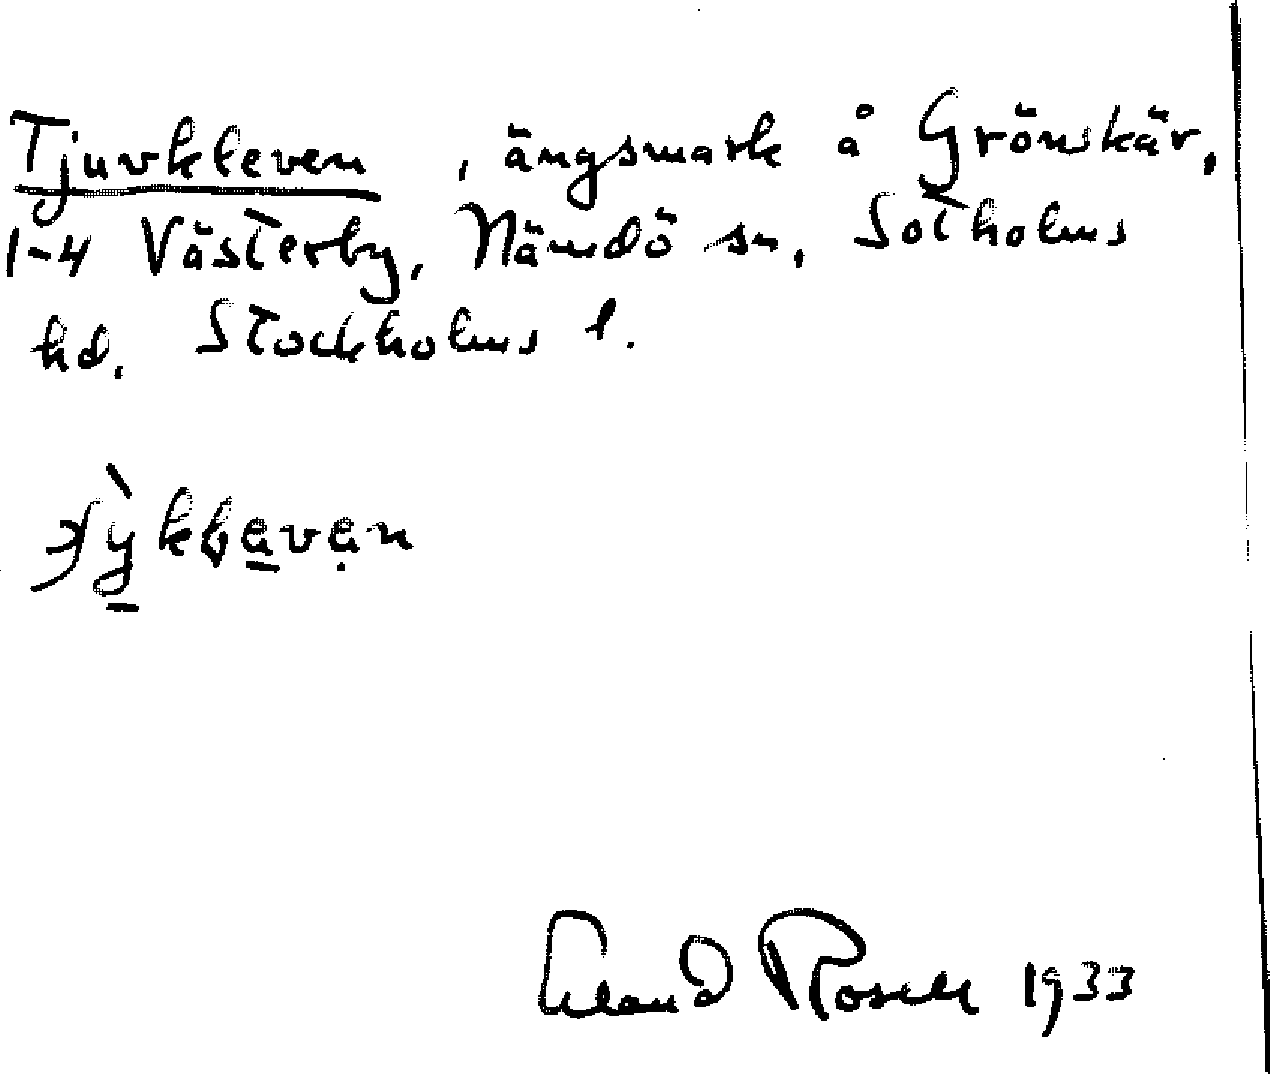 Tjuvkleven, ängsmark å Grönskär,
1-4 Västerby, Nämdö sn, Sotholms
hd, Stockholms l.
Erland Rosell 1933